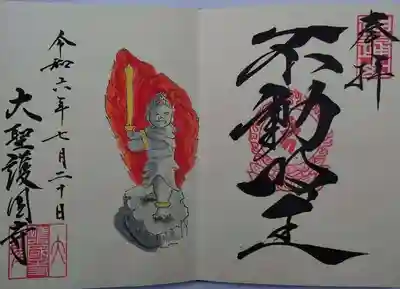 奉拝
不動明王
令和六年七月二十日
大聖護国寺